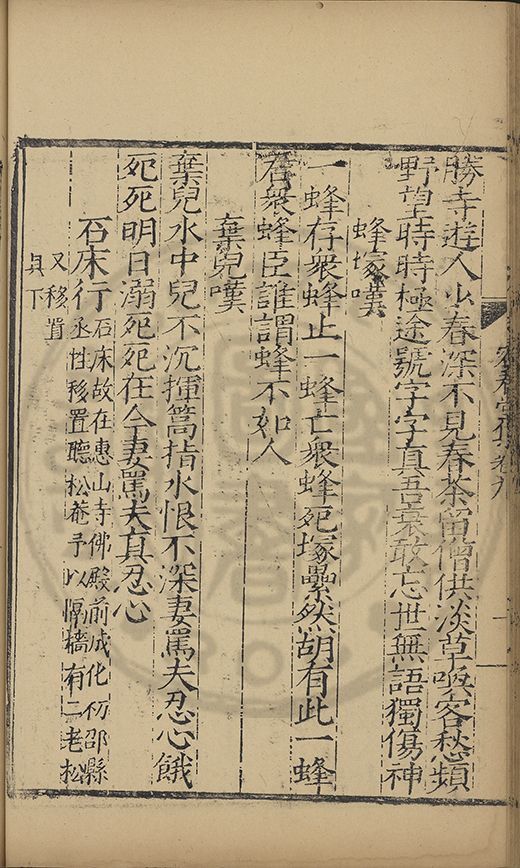 勝寺遊人少春深不見春茶留僧供淡草喚客愁頻
野望時時極途號字字真吾衰敢忘世無語獨傷神
蜂塚嘆
一蜂存衆蜂止一蜂亡衆蜂死塚纍然胡有此一蜂
君衆蜂臣誰謂蜂不如人
棄兒嘆
棄兒水中兒不沉揮篙指水恨不深妻罵夫忍心餓
死死明日溺死死在今妻罵夫真忍心
石床行
石床故在惠山寺佛殿前成化初邵縣
丞性移置聽松菴予以隔牆有二老松
又移置
其下
容春堂集卷九